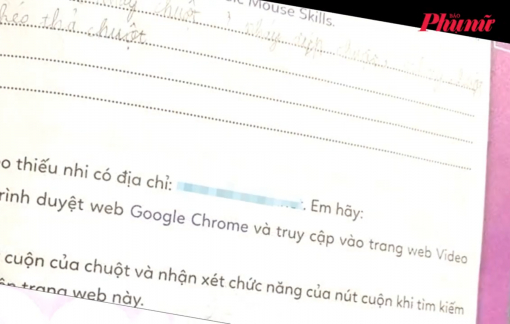 BÁO
Phụ nữ
Mouse Skills.
chuột
thả chuột
thiếu nhi có địa chỉ: . Em hãy:
duyệt web Google Chrome và truy cập vào trang web Video
cuộn của chuột và nhận xét chức năng của nút cuộn khi tìm kiếm
trang web này.